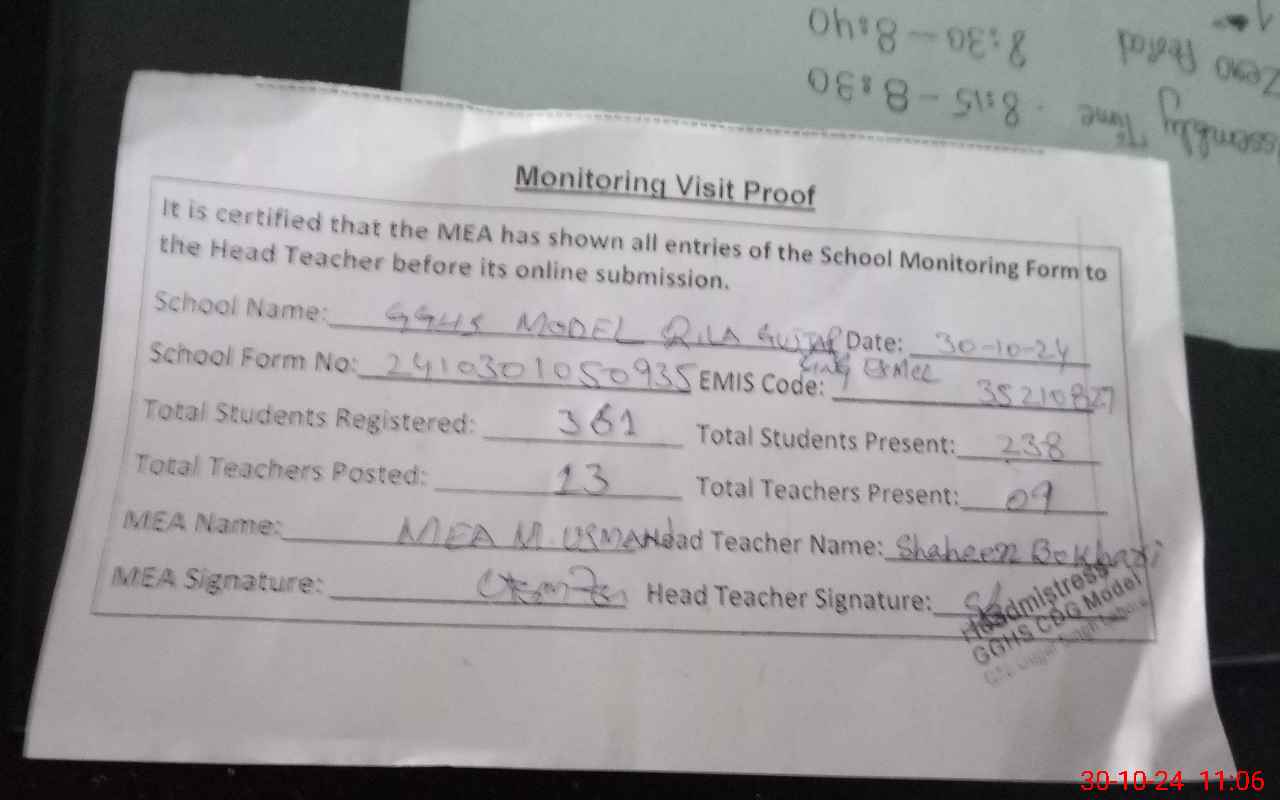 8:30 - 8:40
Zero Period
8:15 - 8:30
Assembly Time
Monitoring Visit Proof
It is certified that the MEA has shown all entries of the School Monitoring Form to
the Head Teacher before its online submission.
School Name: GGHS MODEL QILA GUJAR Date: 30-10-24
School Form No: 2410301050935 EMIS Code: 35210827
Total Students Registered: 361 Total Students Present: 238
Total Teachers Posted: 13 Total Teachers Present: 09
MEA Name: MEA M. USMAN Head Teacher Name: Shaheen Bokhari
MEA Signature: Head Teacher Signature:
Headmistress
GGHS CDG Model
30-10-24 11:06